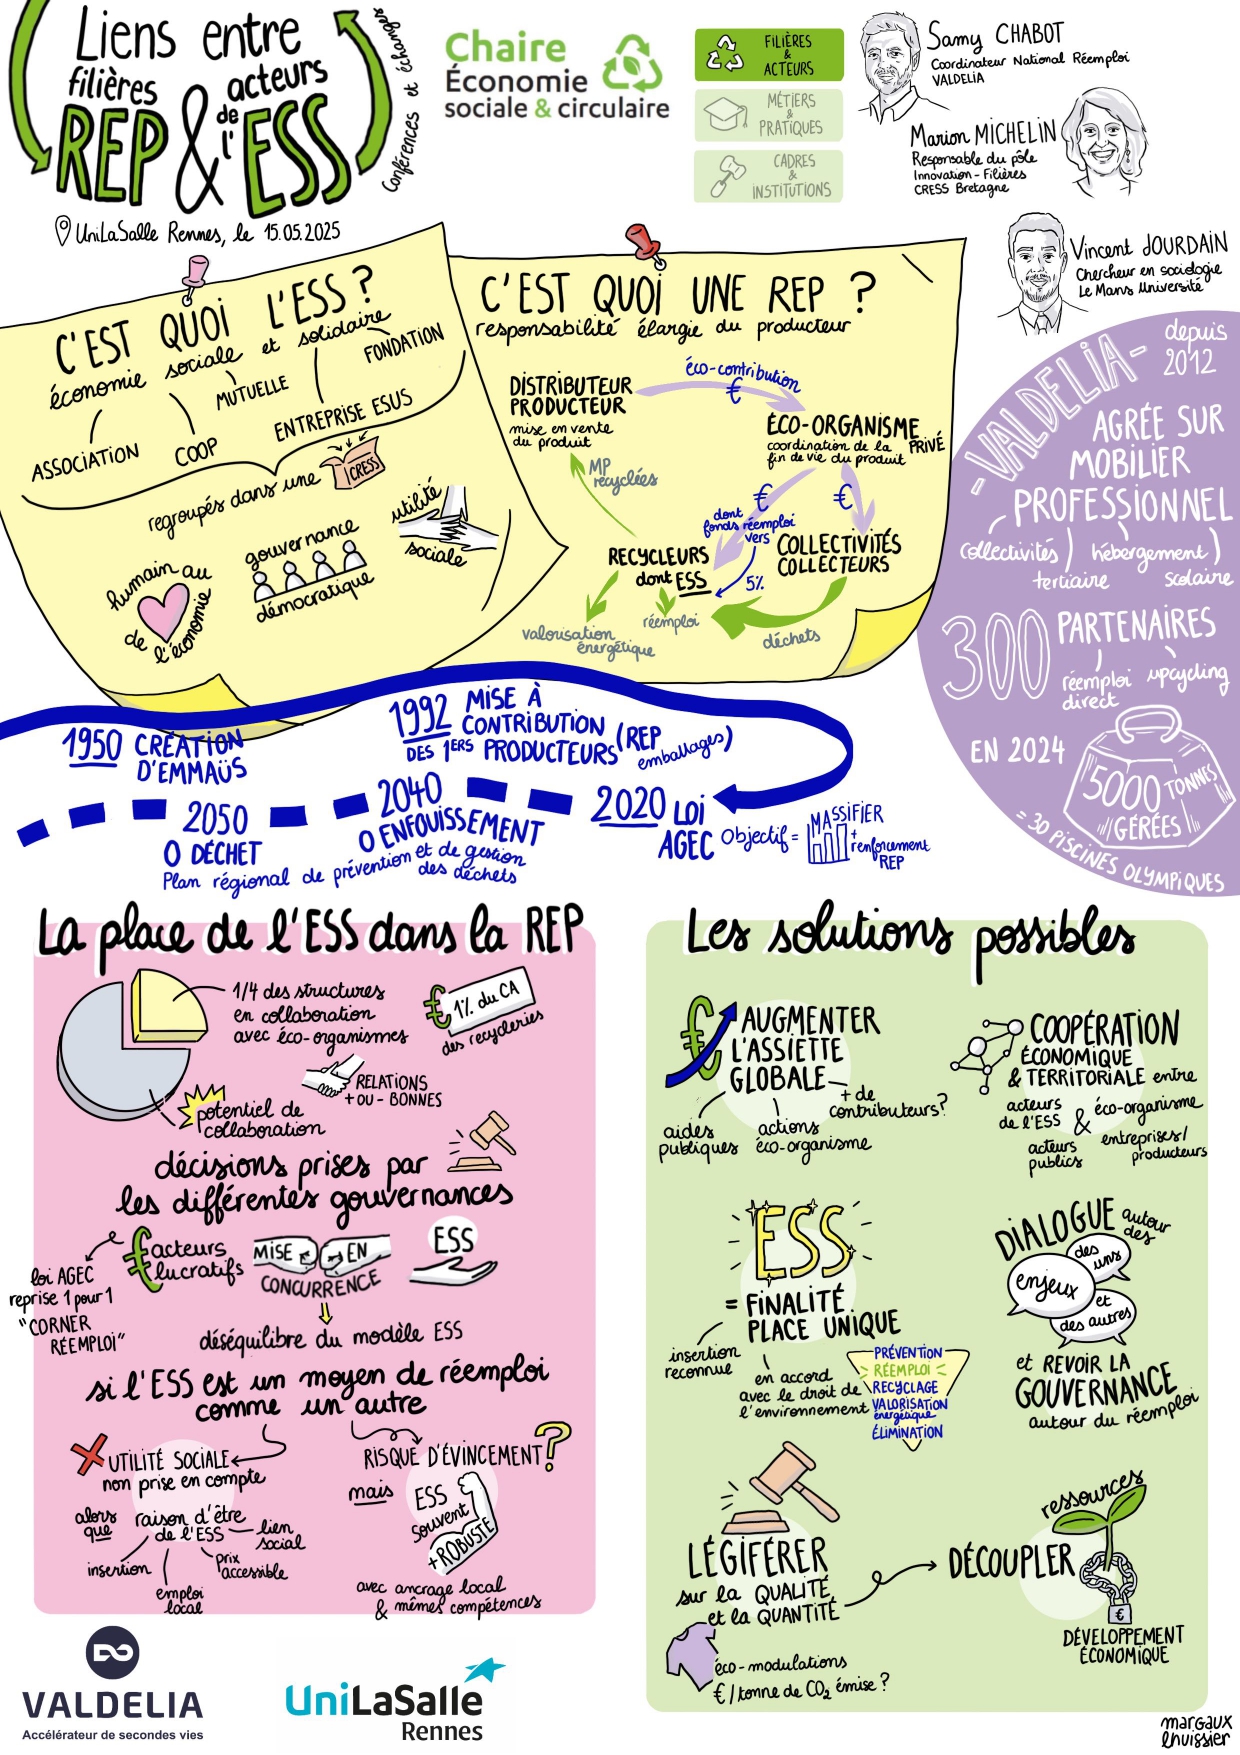 Liens entre
filières
REP
&
acteurs
de
l'ESS
Conférences et échanges
UniLaSalle Rennes, le 15.05.2025
Chaire
Économie
sociale & circulaire
FILIÈRES
&
ACTEURS
MÉTIERS
&
PRATIQUES
CADRES
&
INSTITUTIONS
Samy CHABOT
Coordinateur National Réemploi
VALDELIA
Marion MICHELIN
Responsable du pôle
Innovation - Filières
CRESS Bretagne
Vincent JOURDAIN
Chercheur en sociologie
Le Mans Université
C'EST QUOI L'ESS ?
économie sociale et solidaire
ASSOCIATION
COOP
MUTUELLE
ENTREPRISE ESUS
FONDATION
regroupés dans une
CRESS
humain au
de l'économie
gouvernance
démocratique
utilité
sociale
C'EST QUOI UNE REP ?
responsabilité élargie du producteur
DISTRIBUTEUR
PRODUCTEUR
mise en vente
du produit
éco-contribution
€
ÉCO-ORGANISME
PRIVÉ
coordination de la
fin de vie du produit
MP
recyclées
€
€
dont
fonds réemploi
vers
5%
RECYCLEURS
dont ESS
COLLECTIVITÉS
COLLECTEURS
valorisation
énergétique
réemploi
déchets
- VALDELIA -
depuis
2012
AGRÉE SUR
MOBILIER
PROFESSIONNEL
collectivités
tertiaire
hébergement
scolaire
300 PARTENAIRES
réemploi
direct
upcycling
EN 2024
5000 TONNES
GÉRÉES
= 30 PISCINES OLYMPIQUES
1950 CRÉATION
D'EMMAÜS
1992 MISE À
CONTRIBUTION
DES 1ERS PRODUCTEURS
(REP
emballages)
2020 LOI
AGEC
Objectif =
MASSIFIER
+
renforcement
REP
2040
0 ENFOUISSEMENT
2050
0 DÉCHET
Plan régional de prévention et de gestion
des déchets
La place de l'ESS dans la REP
1/4 des structures
en collaboration
avec éco-organismes
€ 1% du CA
des recycleries
potentiel de
collaboration
RELATIONS
+ OU - BONNES
décisions prises par
les différentes gouvernances
€ acteurs
lucratifs
MISE EN
CONCURRENCE
ESS
loi AGEC
reprise 1 pour 1
"CORNER
RÉEMPLOI"
déséquilibre du modèle ESS
si l'ESS est un moyen de réemploi
comme un autre
UTILITÉ SOCIALE
non prise en compte
alors
que
raison d'être
de l'ESS
insertion
emploi
local
prix
accessible
lien
social
RISQUE D'ÉVINCEMENT ?
mais
ESS
souvent
+ ROBUSTE
avec ancrage local
& mêmes compétences
Les solutions possibles
€ AUGMENTER
L'ASSIETTE
GLOBALE
aides
publiques
actions
éco-organisme
+ de
contributeurs?
COOPÉRATION
ÉCONOMIQUE
& TERRITORIALE entre
acteurs
de l'ESS
&
éco-organisme
acteurs
publics
entreprises/
producteurs
ESS
= FINALITÉ
PLACE UNIQUE
insertion
reconnue
en accord
avec le droit de
l'environnement
PRÉVENTION
RÉEMPLOI
RECYCLAGE
VALORISATION
énergétique
ÉLIMINATION
DIALOGUE autour
des
enjeux
des
uns
et
des autres
et REVOIR LA
GOUVERNANCE
autour du réemploi
LÉGIFÉRER
sur la QUALITÉ
et la QUANTITÉ
éco-modulations
€ / tonne de CO2 émise ?
DÉCOUPLER
ressources
€
DÉVELOPPEMENT
ÉCONOMIQUE
VALDELIA
Accélérateur de secondes vies
UniLaSalle
Rennes
margaux
lhuissier